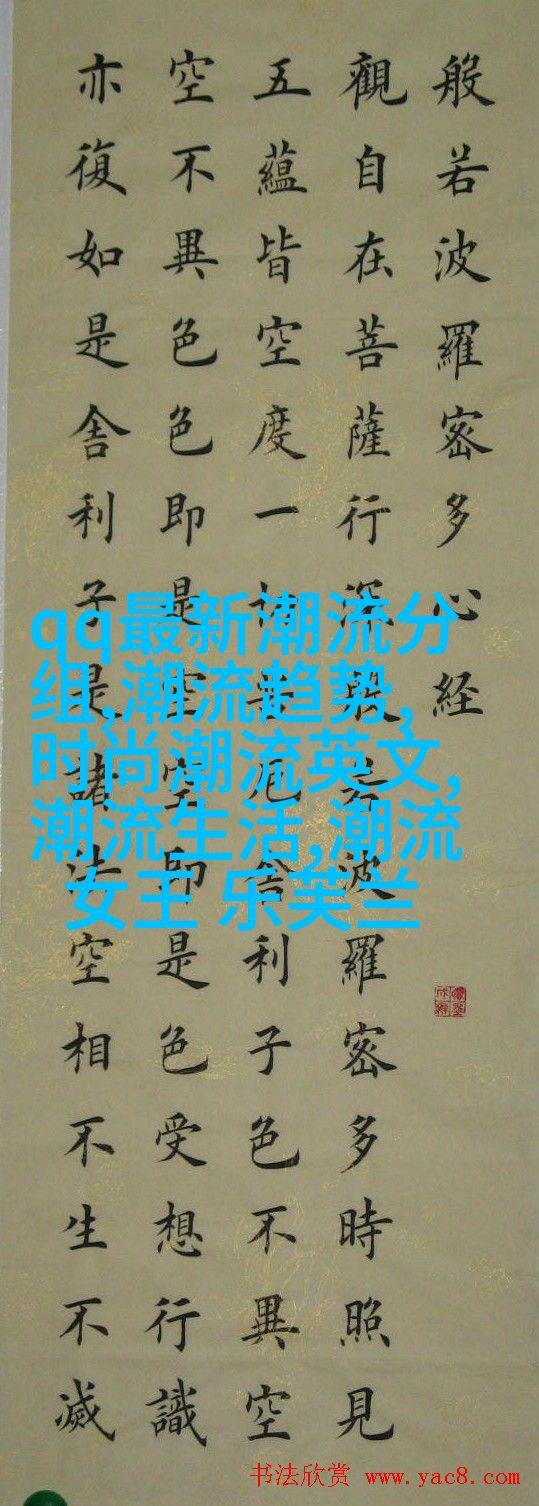 般若波羅密多心経
觀自在菩薩行深般若波羅密多時照見
五蘊皆空度一切苦厄舎利子色不異空
空不異色色即是空空即是色受想行識
亦復如是舎利子是諸法空相不生不滅
qq最新潮流分
组,潮流趋势,
时尚潮流英文,
潮流生活,潮流
女王 乐芙兰
书法欣赏 www.yac8.com